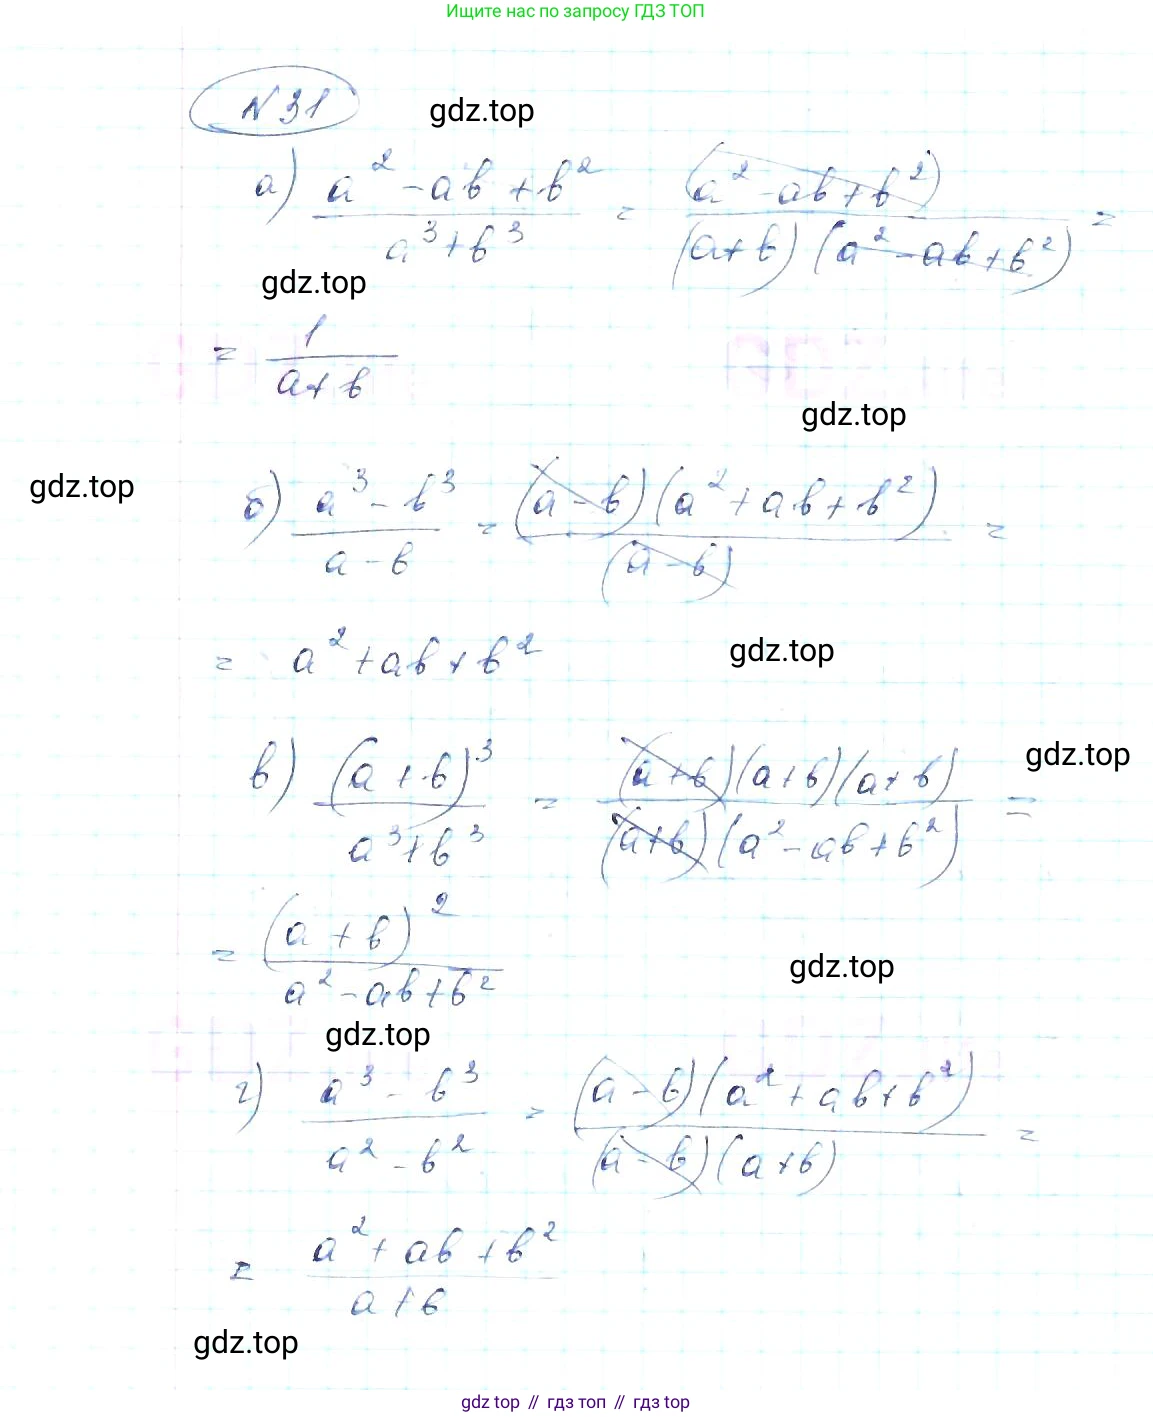 Ищите нас по запросу ГДЗ ТОП
N 31
gdz.top
а) (a² - ab + b²)/(a³ + b³) = (a² - ab + b²)/((a + b)(a² - ab + b²)) =
gdz.top
= 1/(a + b)
gdz.top
gdz.top
б) (a³ - b³)/(a - b) = ((a - b)(a² + ab + b²))/(a - b) =
= a² + ab + b²
gdz.top
gdz.top
в) (a + b)³/(a³ + b³) = ((a + b)(a + b)(a + b))/((a + b)(a² - ab + b²)) =
= (a + b)²/(a² - ab + b²)
gdz.top
gdz.top
г) (a³ - b³)/(a² - b²) = ((a - b)(a² + ab + b²))/((a - b)(a + b)) =
= (a² + ab + b²)/(a + b)
gdz.top
gdz top // гдз топ // gdz top